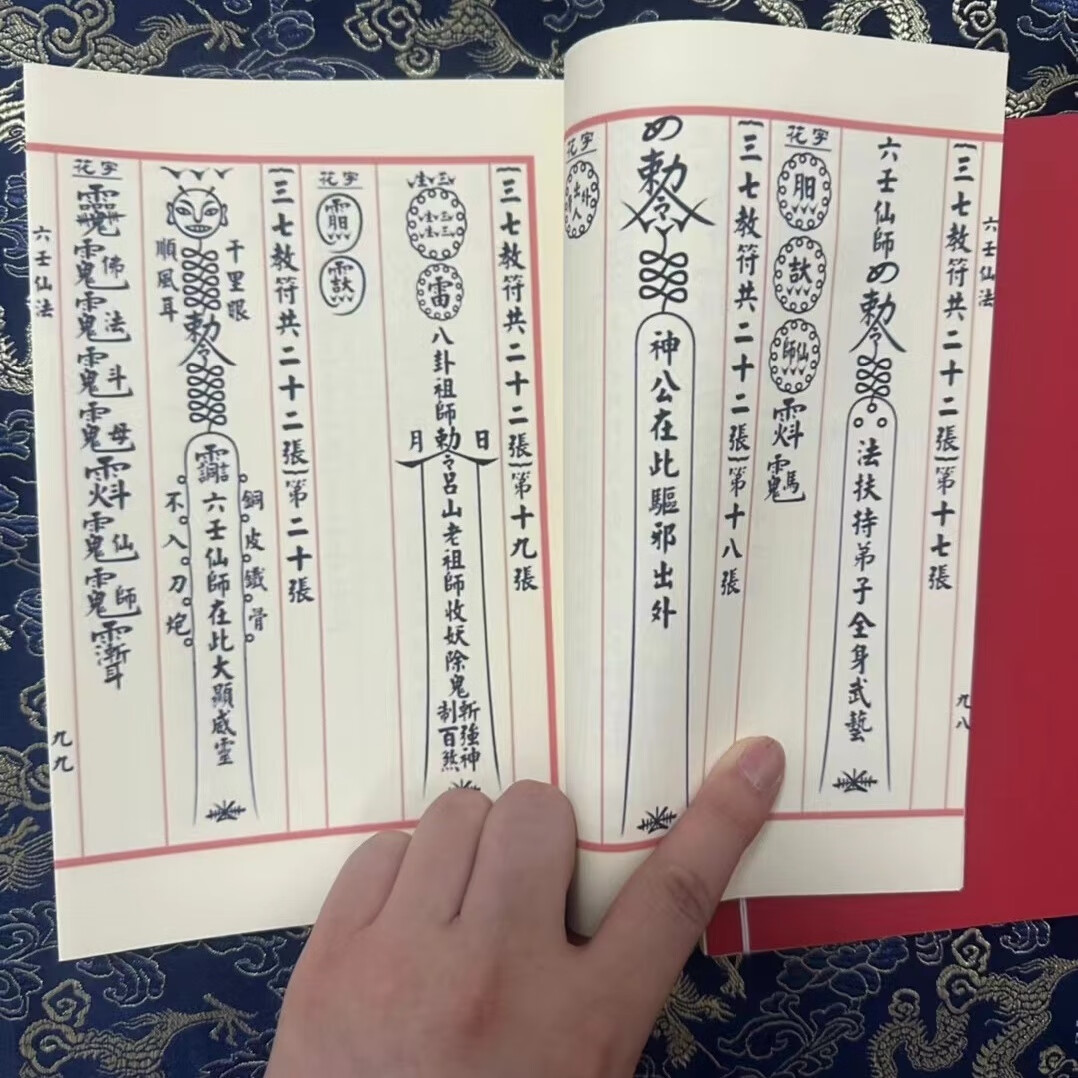 六壬仙法
九八
三七教符共二十二張 第十七張
六壬仙師
勅令
法扶持弟子全身武藝
花字
仙師
三七教符共二十二張 第十八張
勅令
神公在此驅邪出外
花字
出外
人
三七教符共二十二張 第十九張
雷
八卦祖師
日 月
勅令
呂山老祖師收妖除鬼
斬強神
制百煞
花字
三七教符共二十二張 第二十張
千里眼
順風耳
勅令
六壬仙師在此大顯威靈
銅皮鐵骨
不入刀炮
花字
六壬仙法
九九